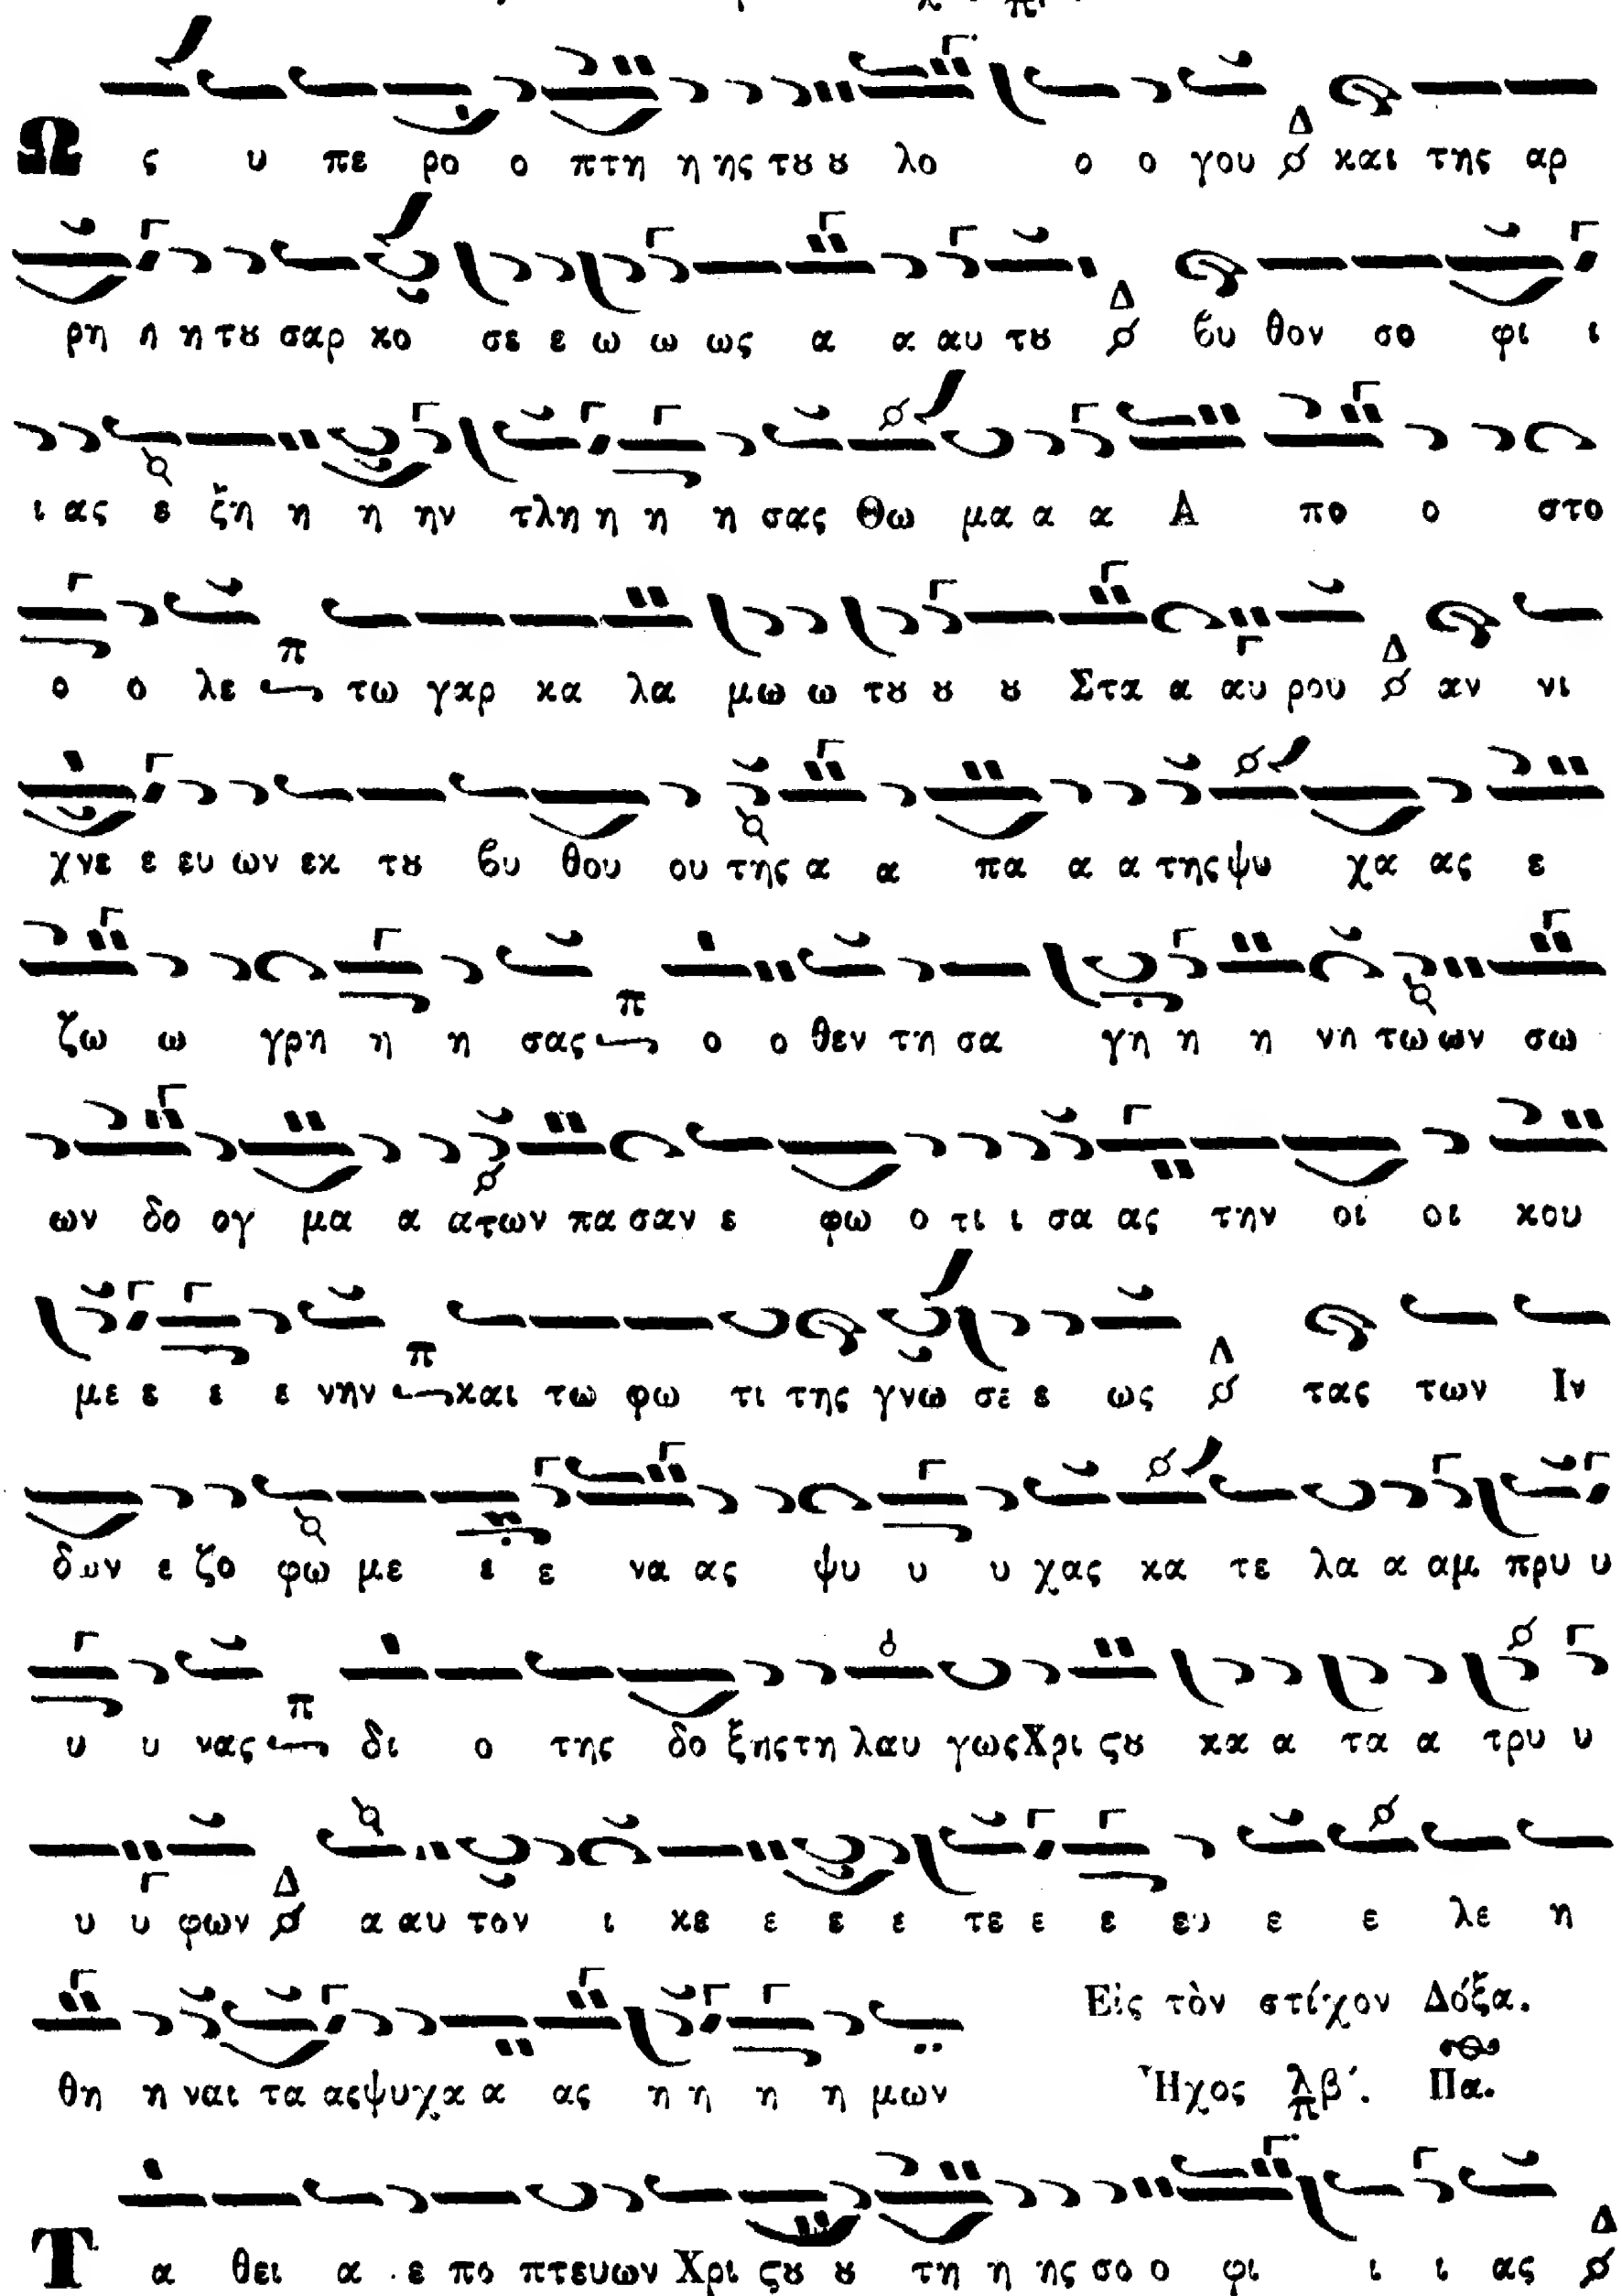 Ω ς υ πε ρο ο πτη η ης τȣ ȣ λο ο ο γου Δ και της αρ
ρη η η τȣ σαρ κο σε ε ω ω ως α α αυ τȣ Δ ϐυ θον σο φι ι
ι ας ε ξη η η ην τλη η η η σας Θω μα α α Α πο ο στο
ο ο λε π τω γαρ κα λα μω ω τȣ ȣ ȣ Στα α αυ ρου Δ αν νι
χνε ε ευ ων εκ τȣ ϐυ θου ου της α α πα α α της ψυ χα ας ε
ζω ω γρη η η σας π ο ο θεν τη σα γη η η νη τω ων σω
ων δο ογ μα α α των πα σαν ε φω ο τι ι σα ας την οι οι κου
με ε ε ε νην π και τω φω τι της γνω σε ε ως Δ τας των Ιν
δων ε ζο φω με ε ε να ας ψυ υ υ χας κα τε λα α αμ πρυ υ
υ υ νας π δι ο της δο ξης τη λαυ γως Χρι ϛȣ κα α τα α τρυ υ
υ υ φων Δ α αυ τον ι κε ε ε ε τε ε ε ευ ε ε λε η
θη η ναι τα ας ψυ χα α ας η η η η μων
Εἰς τὸν στίχον Δόξα.
Ἦχος λ π β΄. Πα.
Τ α θει α ε πο πτευων Χρι ϛȣ ȣ τη η ης σο ο φι ι ι ας Δ